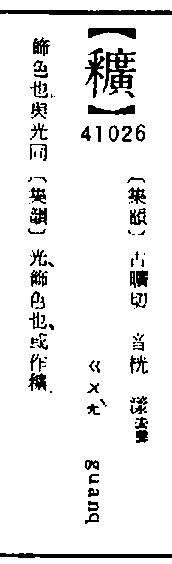 41026
〔集韻〕古曠切 音桄 漾去聲
ㄍㄨㄤˋ guanq
飾色也、與光同〔集韻〕光、飾色也、或作